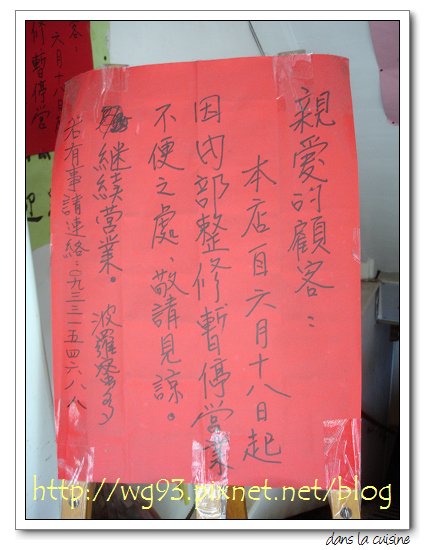 親愛的顧客：
本店自六月十八日起
因內部整修暫停營業
不便之處、敬請見諒。
繼續營業。 波羅蜜多
若有事請連絡：○九三三一五四六八八
客：
六月十八日
修暫停營
http://wg93.pixnet.net/blog
dans la cuisine